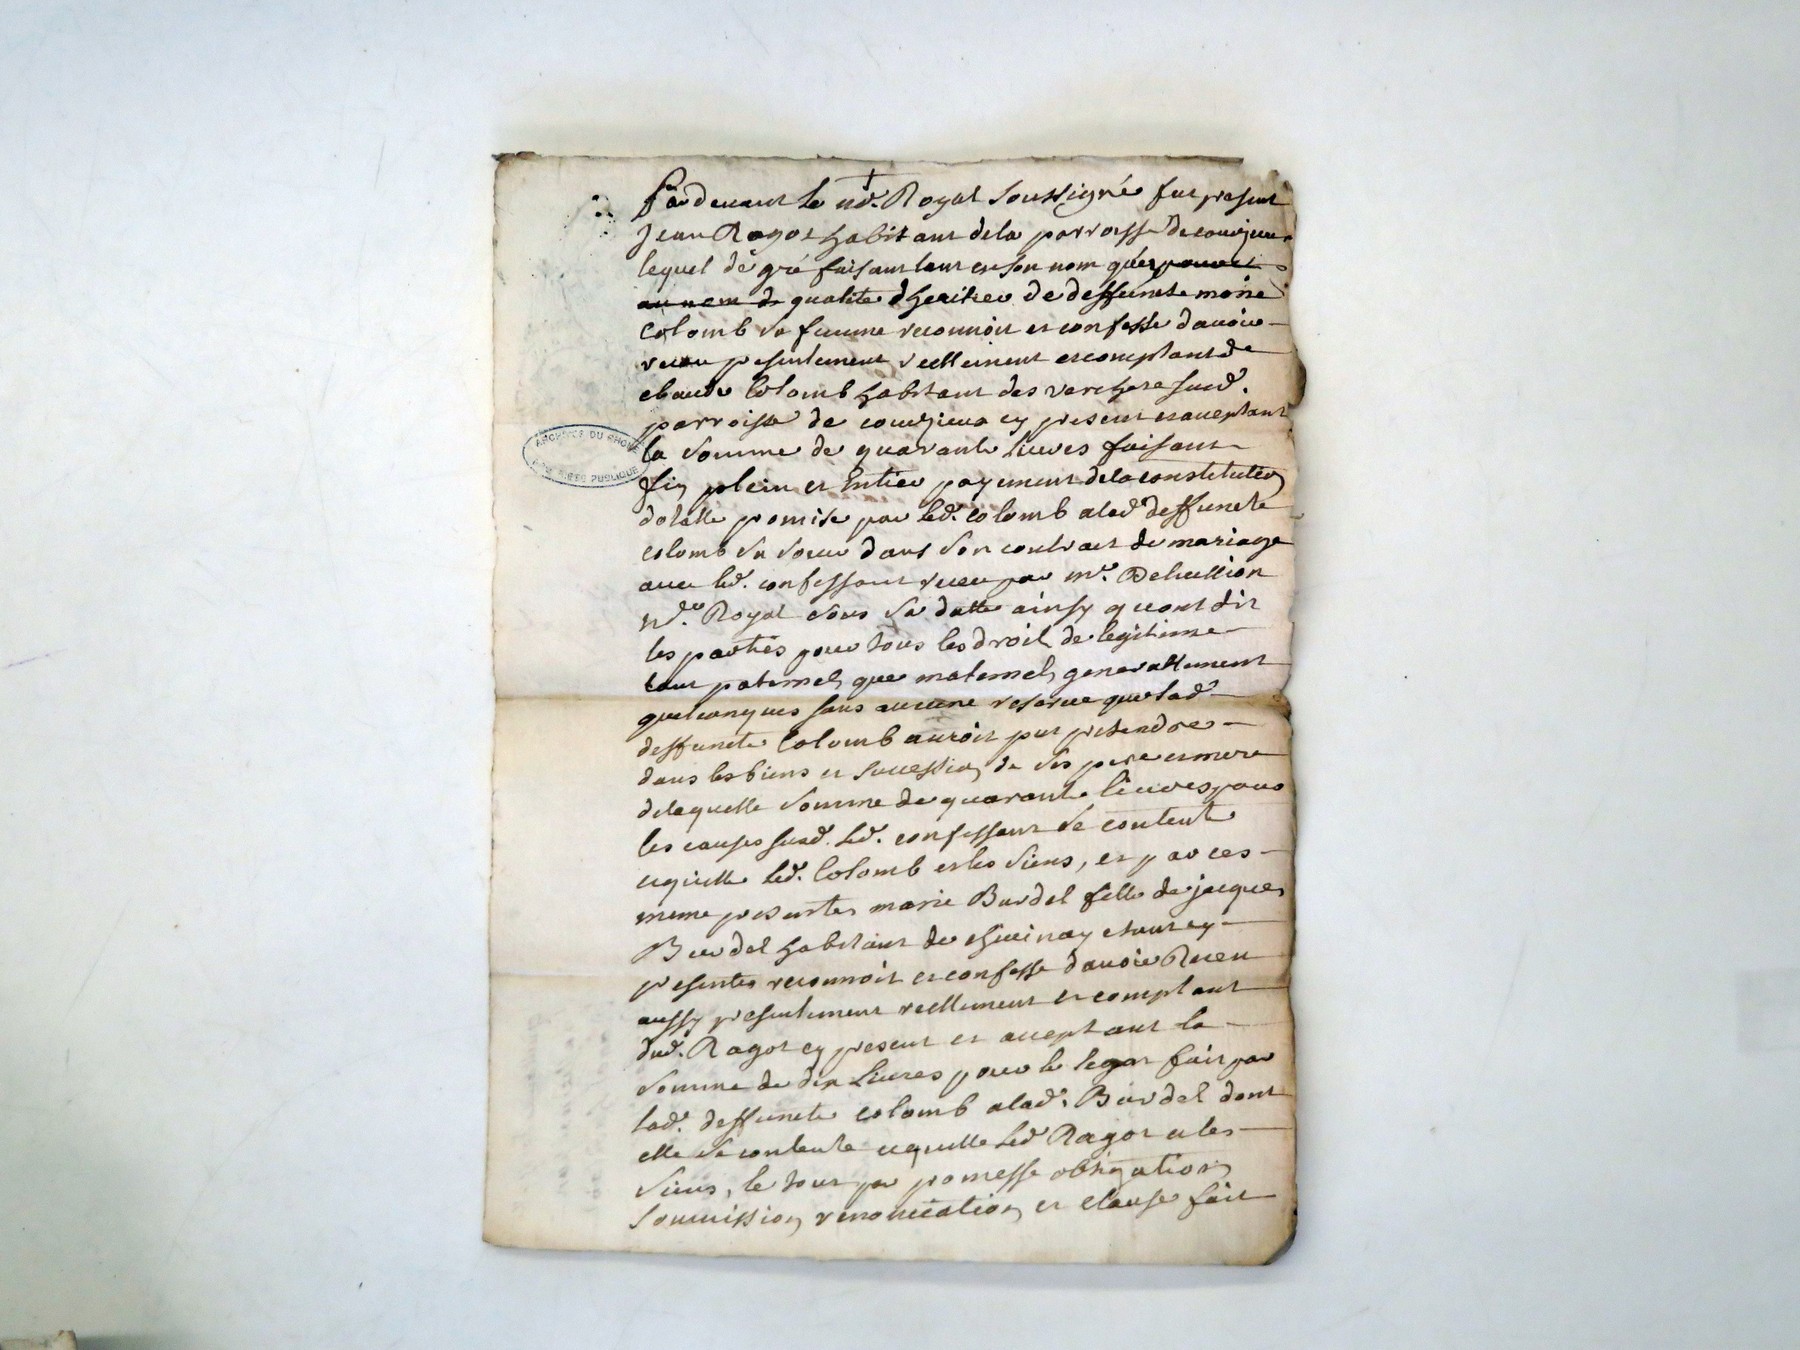 Pardevant le no.re Royal soussigné fut present
Jean Ragot habitant dela parroisse de courzieu
lequel de gré faisant tant en son nom qu'en
au nom de qualité dheritier de deffuncte marie
Colomb sa femme reconnoit et confesse davoir
receu presentement reellement et comptant de
claude Colomb habitant des verchere susd.
parroisse de courzieux cy present et aceptant
la somme de quarante livres faisant
fin plein et entier payement dela constitution
dotalle promise par led. colomb alad. deffuncte
colomb sa soeur dans son contract de mariage
avec led. confessant receu par me.
No.re Royal sous sa datte ainsy quont dit
les parties pour tous les droit de legitime
tant paternels que maternels generallement
quelconques sans aucune reserve que lad.
deffuncte Colomb auroit put pretendre
dans les biens et succession de ses pere et mere
delaquelle somme de quarante livres pour
les causes susd. led. confessant se contente
et quitte led. Colomb et les siens, et par ces
meme presentes marie Burdel fille de jacques
Burdel habitant de chevinay estant cy
presentes reconnoit et confesse davoir Receu
aussy presentement reellement et comptant
dud. Ragot cy present et aceptant la
somme de dix livres pour le legat fait par
lad. deffuncte colomb alad. Burdel dont
elle se contente et quitte led. Ragot et les
siens, le tout par promesse obligation
soumission renonciation et clause fait
ARCHIVES DU RHONE
PUBLIQUE